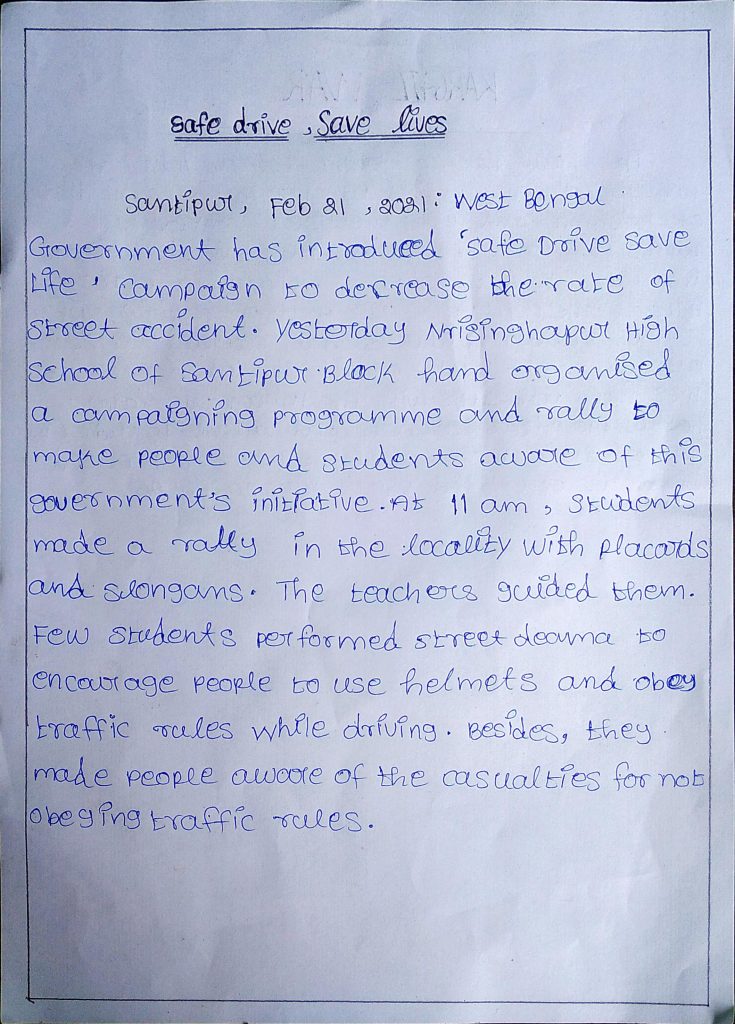 Safe drive, Save lives
Santipur, Feb 21, 2021: West Bengal
Government has introduced 'Safe Drive Save
Life' Campaign to decrease the rate of
street accident. Yesterday Nrisinghapur High
School of Santipur Block hand organised
a campaigning programme and rally to
make people and students aware of this
government's initiative. At 11 am, students
made a rally in the locality with placards
and slongans. The teachers guided them.
Few students performed street deama to
encourage people to use helmets and obey
traffic rules while driving. Besides, they
made people aware of the casualties for not
obeying traffic rules.